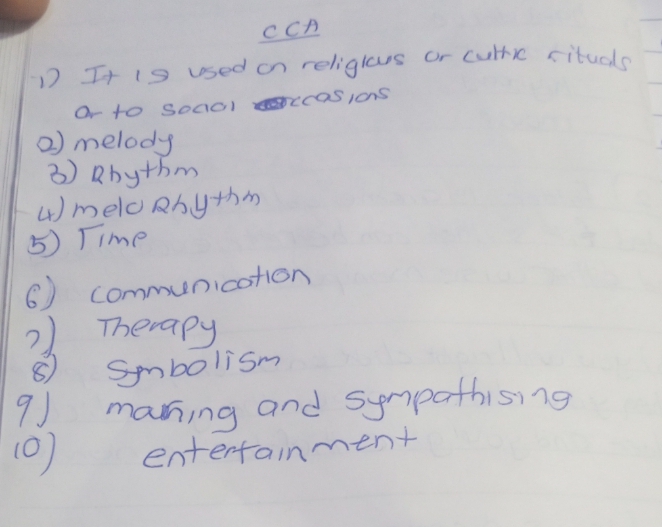 CCA
1) It is used on religious or cultic rituals
or to social occasions
2) melody
3) Rhythm
4) melo Rhythm
5) Time
6) communication
7) Therapy
8) Symbolism
9) marning and sympathising
10) entertainment